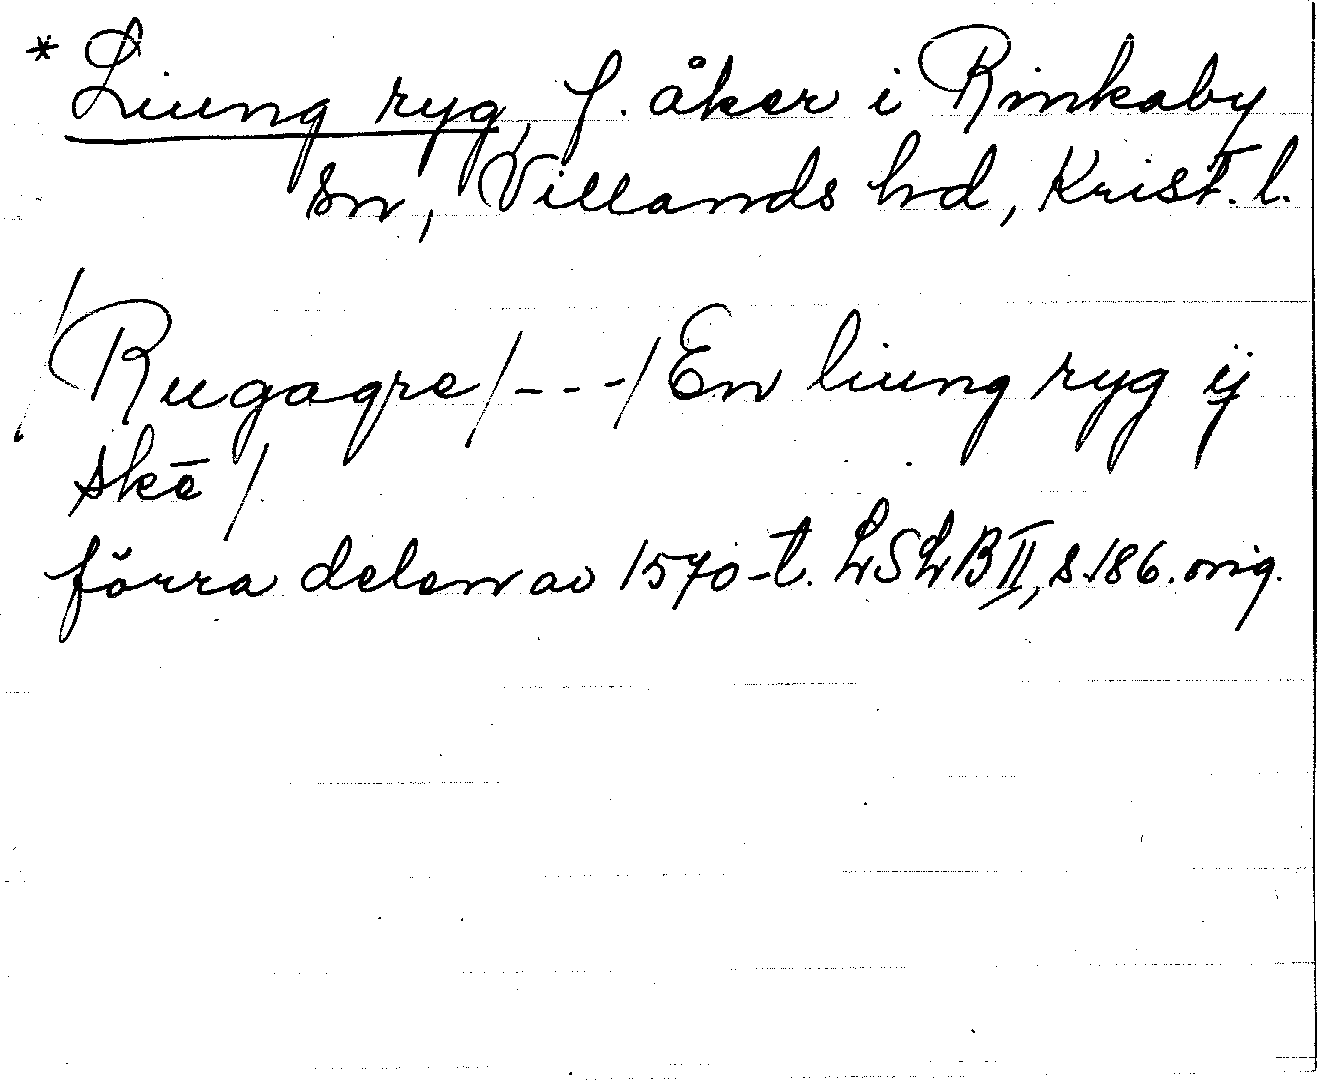 * Liung ryg, f. åker i Rinkaby
sn, Villands hd, Krist. l.
/Rugagre/---/En liung ryg ij
skē/
förra delen av 1570-t. LSLB II, s.186. orig.